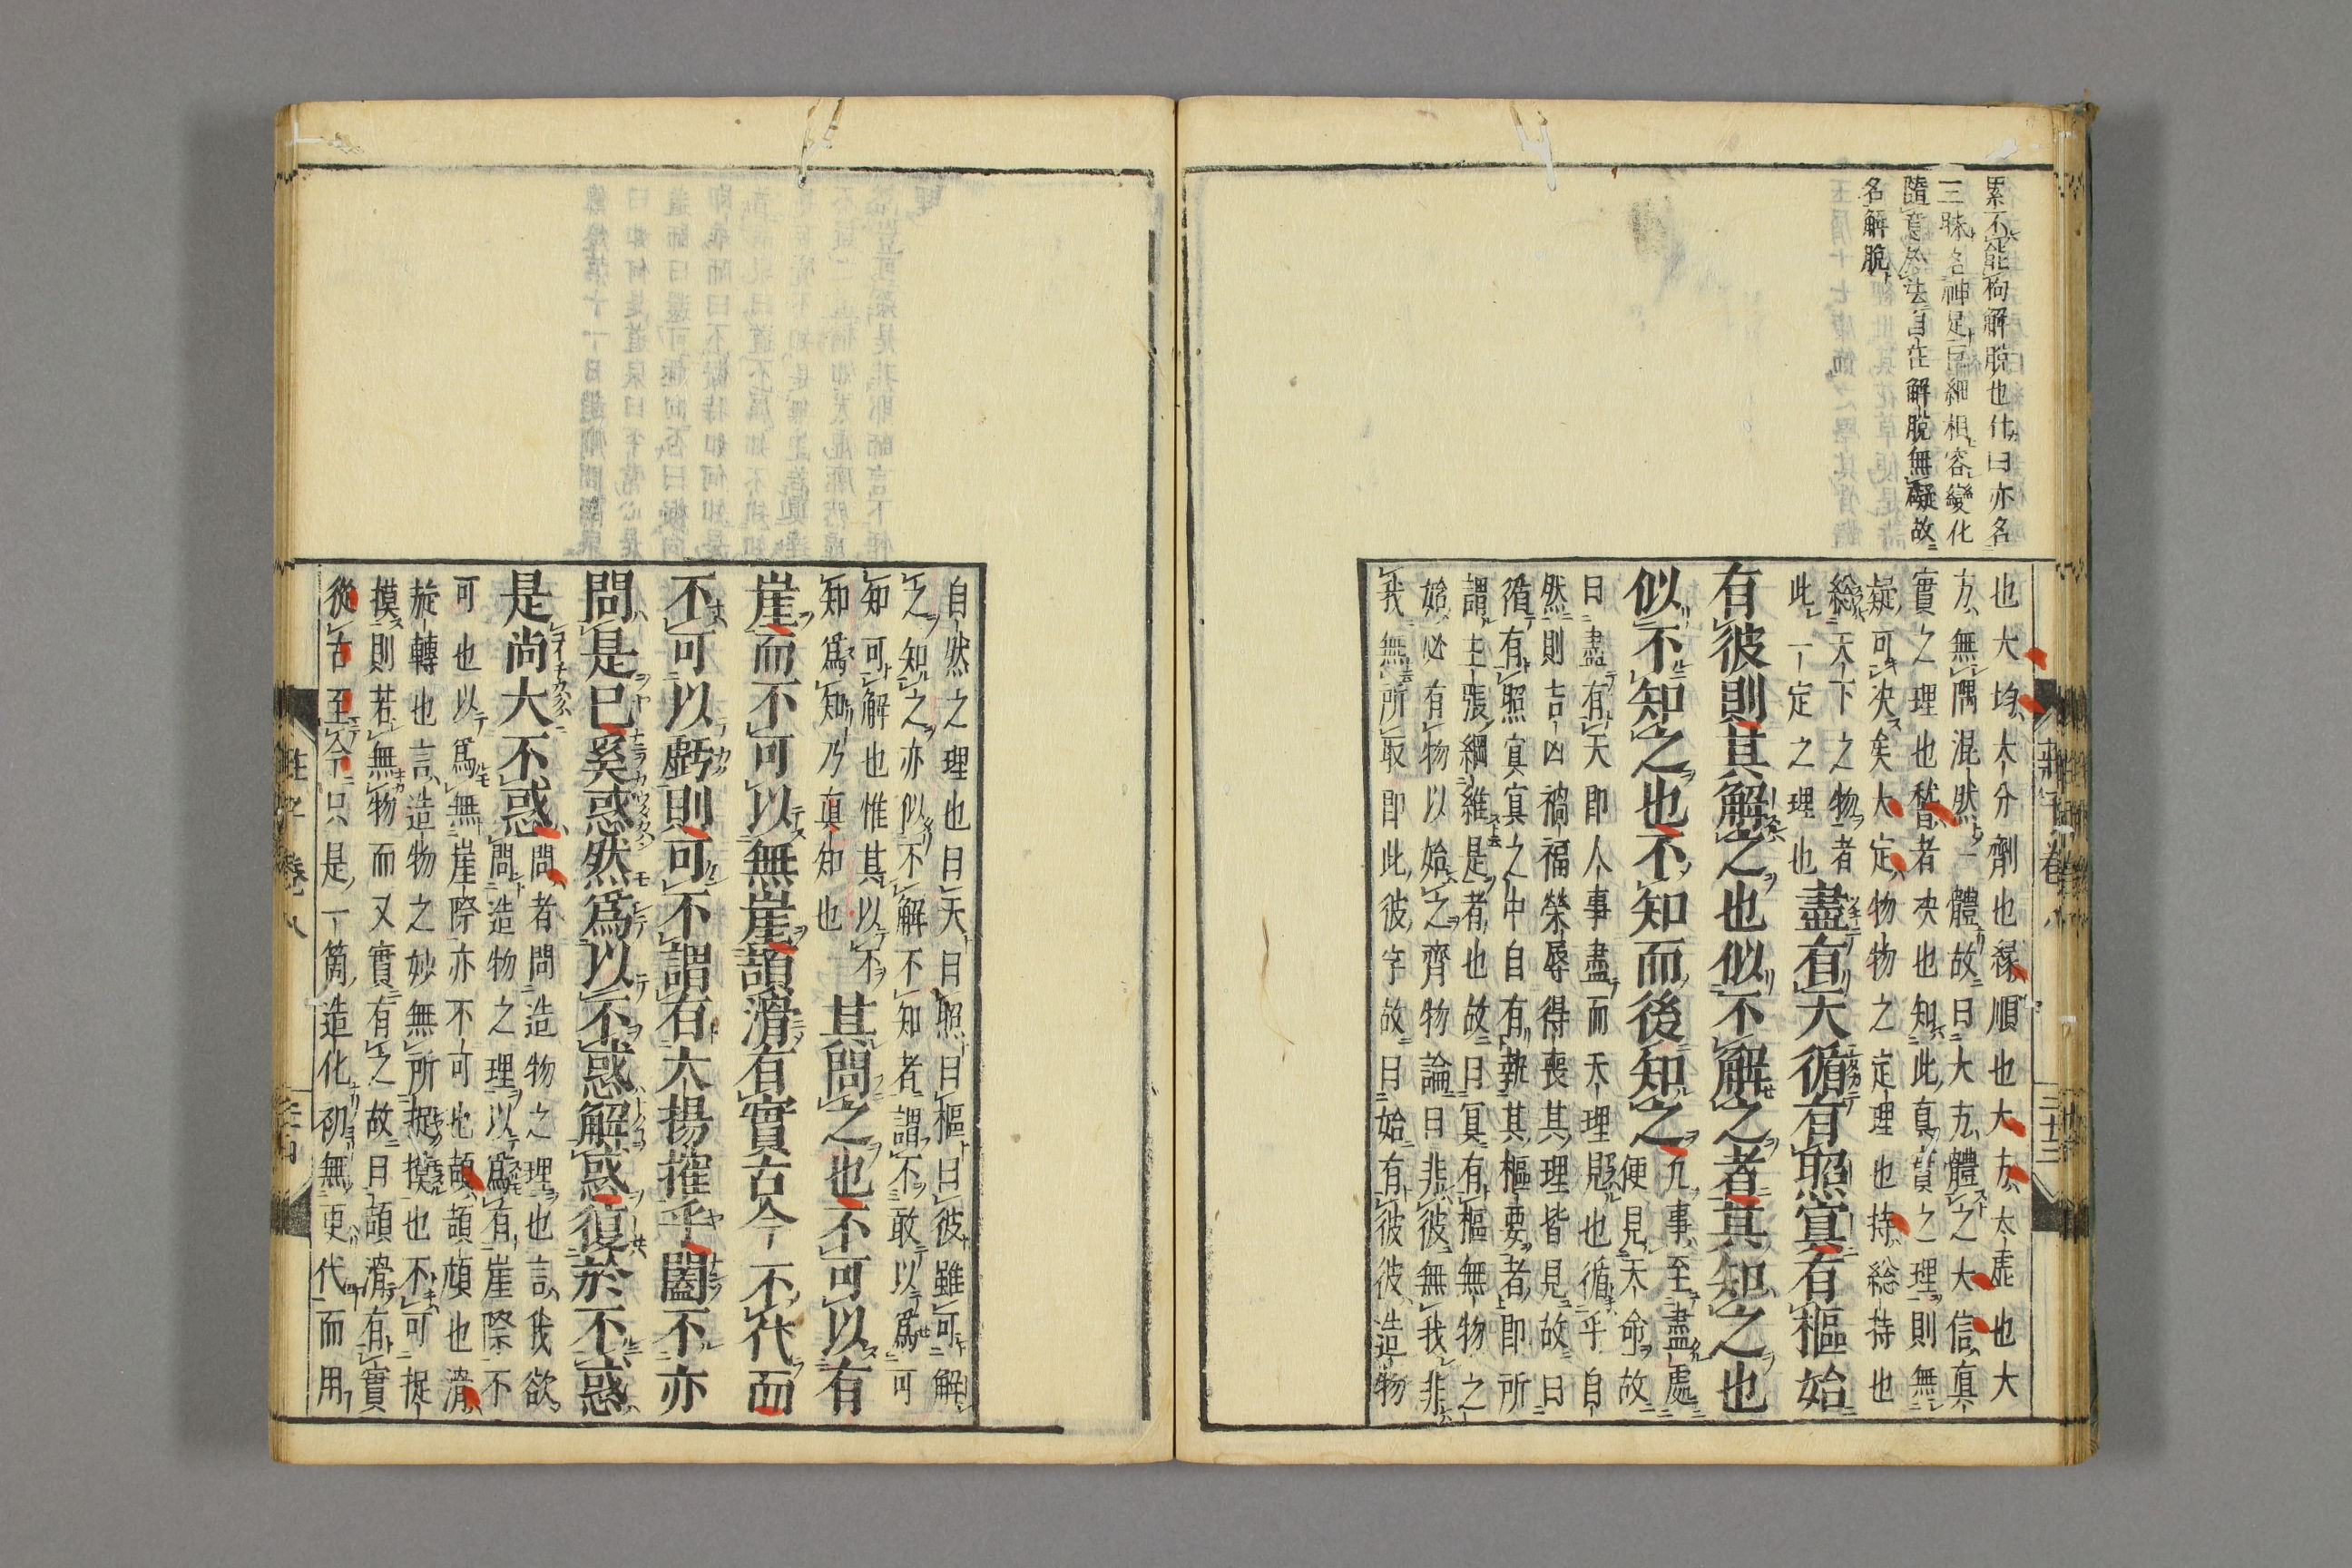 累不能拘解脱也什曰亦名
三昧名神足巨細相容變化
隨意於法自在解脱無礙故
名解脱
也大均大分劑也縁順也大方太虚也大
方無隅混然一體故曰大方體之大信真
實之理也稽者决也知此真實之理則無
疑可决矣大定物物之定理也持総持也
総天下之物者
此一定之理也
盡有天循有照冥有樞始
有彼則其解之也似不解之者其知之也
似不知之也不知而後知之
凡事至盡處
便見天命故
曰盡有天即人事盡而天理見也循乎自
然則吉凶禍福榮辱得喪其理皆見故曰
循有照冥冥之中自有執其樞要者即所
謂主張綱維是者也故曰冥有樞無物之
始必有物以始之齊物論曰非彼無我非
我無所取即此彼字故曰始有彼彼造物
莊子 卷八 三十三
自然之理也曰天曰照曰樞曰彼雖可解
之知之亦似不解不知者謂不敢以爲可
知可解也惟其以不
知爲知乃真知也
其問之也不可以有
崖而不可以無崖頡滑有實古今不代而
不可以虧則可不謂有大揚搉乎闔不亦
問是已奚惑然爲以不惑解惑復於不惑
是尚大不惑
問者問造物之理也言我欲
問造物之理以爲有崖際不
可也以爲無崖際亦不可也頡頡頏也滑
旋轉也言造物之妙無所捉摸也不可捉
摸則若無物而又實有之故曰頡滑有實
從古至今只是一箇造化初無更代而用
莊子 卷八 三十四